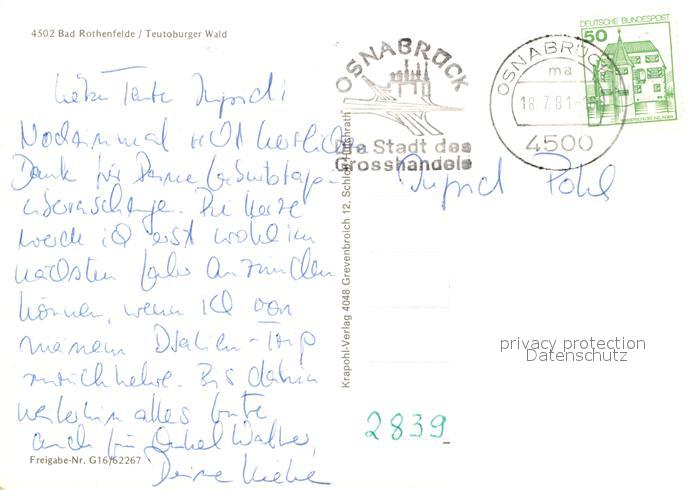 4502 Bad Rothenfelde / Teutoburger Wald
Liebe Tante Ingrid!
Nocheinmal recht herzlichen
Dank für Deine Geburtstags-
überraschung. Die Kerze
werde ich erst wohl im
nächsten Jahr anzünden
können, wenn ich von
meinem Italien-Trip
zurückkehre. Bis dahin
weiterhin alles Gute
auch für Onkel Walter,
Deine
Freigabe-Nr. G16/62267
Krapohl-Verlag 4048 Grevenbroich 12, Schloß Hülchrath
OSNABRÜCK
Die Stadt des
Grosshandels
OSNABRÜCK
ma
18.7.81
4500
DEUTSCHE BUNDESPOST
50
Ingrid Pohl
privacy protection
Datenschutz
2839